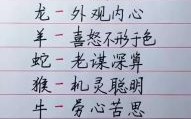 龙－外观内心
羊－喜怒不形于色
蛇－老谋深算
猴－机灵聪明
牛－劳心苦思